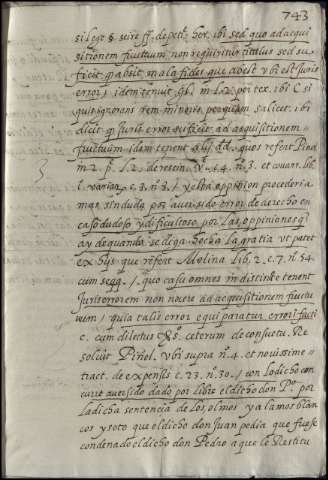 743
si lege § scire ff. de petit. her. ibi sed quo ad acqui
sitionem fructuum non requiritur titulus sed su
ficit q absit mala fides que abest ubi est juris
error, idem tenuit gl. in l. 2. por tex. ibi C. si
quis ignorans rem minoris salicet. ibi
dicit q juris error sufficit ad acquisitionem
fructuum idem tenent alij dd. quos refert Pinel
in 2. p. l. 2. de rescin. n. 3. et couar. lib.
1. variar. c. 3. n. 3. / y esta oppinion procederia
mas sin duda por aver sido error de derecho en
caso dudoso y dificultoso por las oppiniones q
ay de quando se diga hecha la gratia ut patet
ex his que refert Molina lib. 2. c. 7. n. 54.
cum seqq. /. quo casu omnes indistinkte tenent
juris errorem non nocere ad acquisitionem fructu
uum / quia talis error equiparatur errori facti
c. cum dilectus ceterum de consuetu. Re
soluit Piñol. ubi supra n. 4. et novissime
tract. de expensis c. 23. n. 30. / con lo dicho con
curre aver sido dado por libre el dicho don P.º por
la dicha sentencia de los, olmos y alamos blan
cos y soto que el dicho don Juan pedia que fuese
condenado el dicho don Pedro a que le Restitu